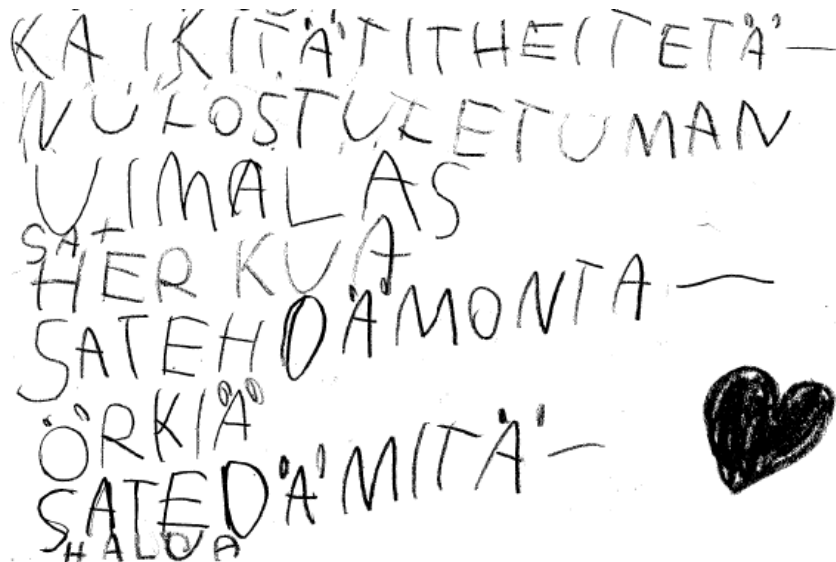 KAIKITÄTITHEITETÄ—
NULOSTULETUMAN
UIMALAS
SAT
HERKUA
SATEHDÄMONTA—
ÖRKIÄ
SATEDÄMITÄ—
HALUA